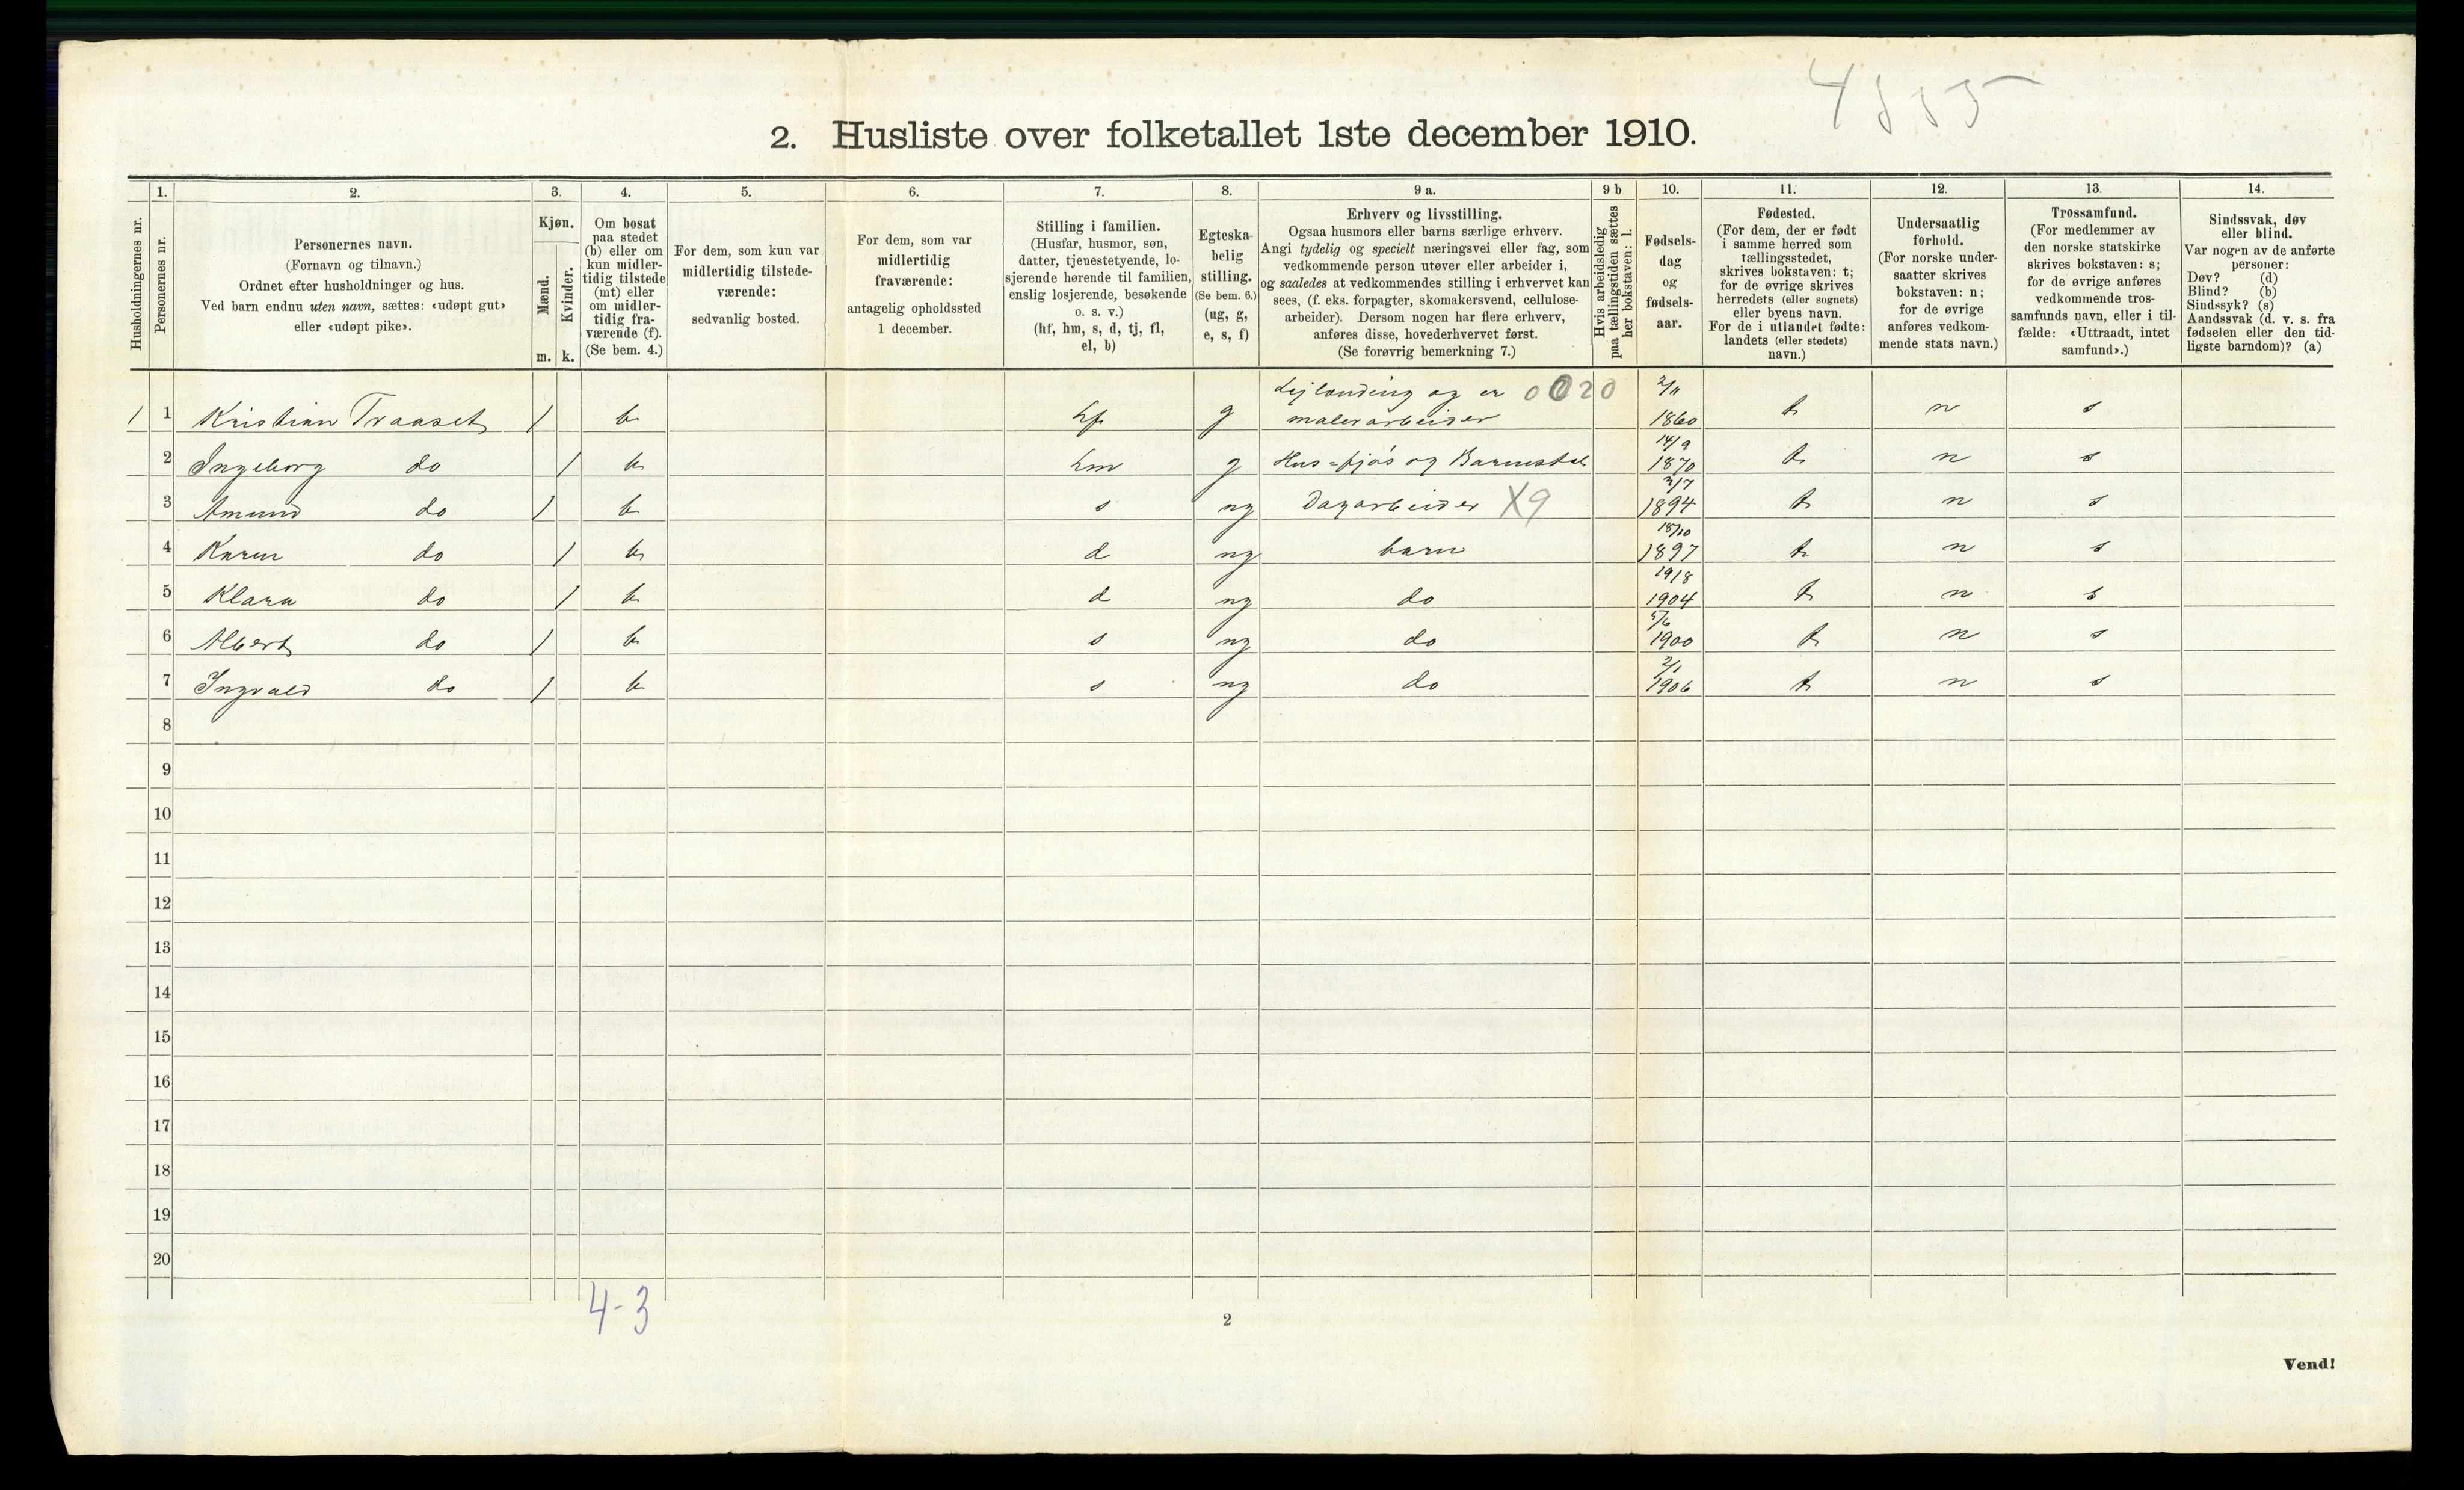 2. Husliste over folketallet 1ste december 1910.
Husholdningernes nr.
1.
Personernes nr.
2.
Personernes navn.
(Fornavn og tilnavn.)
Ordnet efter husholdninger og hus.
Ved barn endnu uten navn, sættes: «udøpt gut»
eller «udøpt pike».
3.
Kjøn.
Mænd.
Kvinder.
m. k.
4.
Om bosat
paa stedet
(b) eller om
kun midler-
tidig tilstede
(mt) eller
om midler-
tidig fra-
værende (f).
(Se bem. 4.)
5.
For dem, som kun var
midlertidig tilstede-
værende:
sedvanlig bosted.
6.
For dem, som var
midlertidig
fraværende:
antagelig opholdssted
1 december.
7.
Stilling i familien.
(Husfar, husmor, søn,
datter, tjenestetyende, lo-
sjerende hørende til familien,
enslig losjerende, besøkende
o. s. v.)
(hf, hm, s, d, tj, fl,
el, b)
8.
Egteska-
belig
stilling.
(Se bem. 6.)
(ug, g,
e, s, f)
9 a.
Erhverv og livsstilling.
Ogsaa husmors eller barns særlige erhverv.
Angi tydelig og specielt næringsvei eller fag, som
vedkommende person utøver eller arbeider i,
og saaledes at vedkommendes stilling i erhvervet kan
sees, (f. eks. forpagter, skomakersvend, cellulose-
arbeider). Dersom nogen har flere erhverv,
anføres disse, hovederhvervet først.
(Se forøvrig bemerkning 7.)
9 b
Hvis arbeidsledig
paa tællingstiden sættes
her bokstaven: l.
10.
Fødsels-
dag
og
fødsels-
aar.
11.
Fødested.
(For dem, der er født
i samme herred som
tællingsstedet,
skrives bokstaven: t;
for de øvrige skrives
herredets (eller sognets)
eller byens navn.
For de i utlandet fødte:
landets (eller stedets)
navn.)
12.
Undersaatlig
forhold.
(For norske under-
saatter skrives
bokstaven: n;
for de øvrige
anføres vedkom-
mende stats navn.)
13.
Trossamfund.
(For medlemmer av
den norske statskirke
skrives bokstaven: s;
for de øvrige anføres
vedkommende tros-
samfunds navn, eller i til-
fælde: «Uttraadt, intet
samfund».)
14.
Sindssvak, døv
eller blind.
Var nogen av de anførte
personer:
Døv? (d)
Blind? (b)
Sindssyk? (s)
Aandssvak (d. v. s. fra
fødselen eller den tid-
ligste barndom)? (a)
og er 0020 2/11
1 1 Kristian Traaset 1 b hf g malerarbeider 1860 t n s
14/9
2 Ingeborg do 1 b hm g Hus-fjøs og Barnestel 1870 t n s
2/7
3 Amund do 1 b s ug Dagarbeider X9 1894 t n s
18/10
4 Karen do 1 b d ug barn 1897 t n s
19/8
5 Klara do 1 b d ug do 1904 t n s
5/6
6 Albert do 1 b s ug do 1900 t n s
2/1
7 Ingvald do 1 b s ug do 1906 t n s
8
9
10
11
12
13
14
15
16
17
18
19
20
4-3
2
Vend!